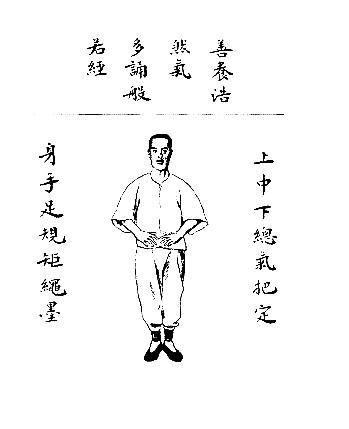 善養浩
然氣
多誦般
若經
上中下總氣把定
身手足規矩繩墨